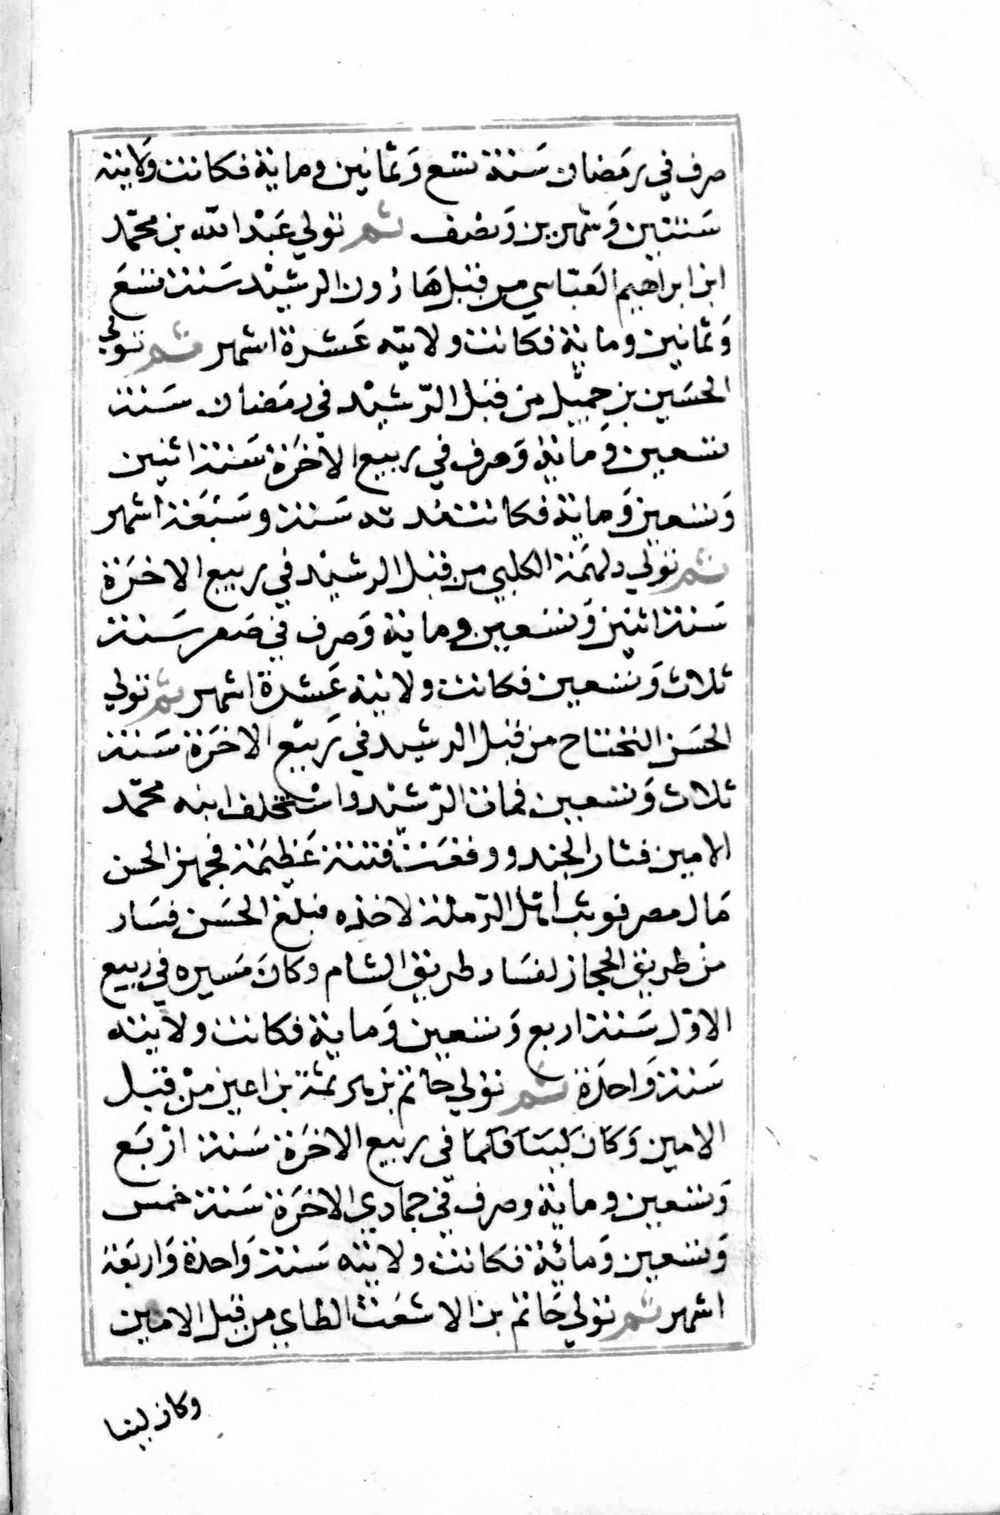 صرف في رمضان سَنة تسع وَثمانين وماية فكانت وَلايته
سَنتين وَشهرين وَنصف ثم تولي عَبْد الله بن محمّد
ابن ابراهيم العَبّاسي من قبل هَارُون الرشيْد سَنة تسعَ
وَثمانين وماية فكانت ولايته عَشرة اشهر ثم تولي
الحسَين بن جميْل من قبَل الرّشيْد في رمَضان سَنة
تسعين وماية وَصرف في ربيع الاخرَة سَنة اثنين
وَتسعين وَماية فكانت مدته سَنة وسَبْعَة اشهر
ثم تولي دلهمَة الكلبي من قبل الرشيْد في ربيع الاخرَة
سَنة اثنين وَتسْعين وماية وَصرف في صَفر سَنة
ثلاث وَتسعين فكانت ولايته عَشرة اشهر ثم تولي
الحسَن التختاح من قبل الرشيد في رَبيْع الاخرَة سَنة
ثلاث وَتسعين فمات الرّشيْد واسْتخلف ابنه محمّد
الامين فثار الجند ووقعَتْ فتنة عَظيمَة فجهز الحسن
مَال مصر فوثب اهل الرّملة لاخذه فبلغ الحسَن فسَار
من طريق الحجاز لفسَاد طريق الشام وكانَ مَسيره في ربيع
الاوّل سَنة اربع وَتسعين وَماية فكانت ولايته
سَنة وَاحدَة ثم تولي حاتم بن هرثمة بن اعين منْ قبَل
الامين وَكانَ ليّنا فكما في ربيع الاخرَة سَنة ارْبَع
وَتسعين وماية وصرف في جمادي الاخرَة سَنة خمس
وَتسعين وَمائة فكانت ولايته سَنة وَاحدة وَاربَعة
اشهر ثم تولي حَاتم بن الاشعَث الطاي من قبل الامين
وكان لينا